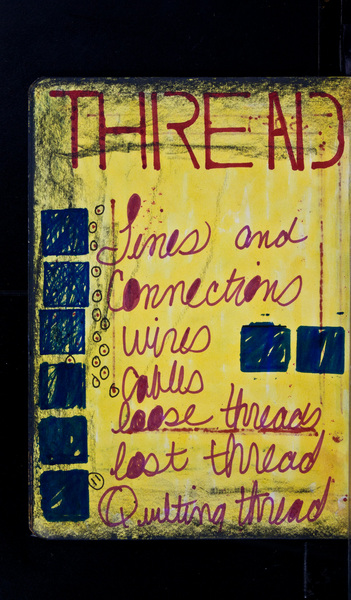 THREAD
Lines and
Connections
wires
Cables
loose threads
lost thread
Quilting thread